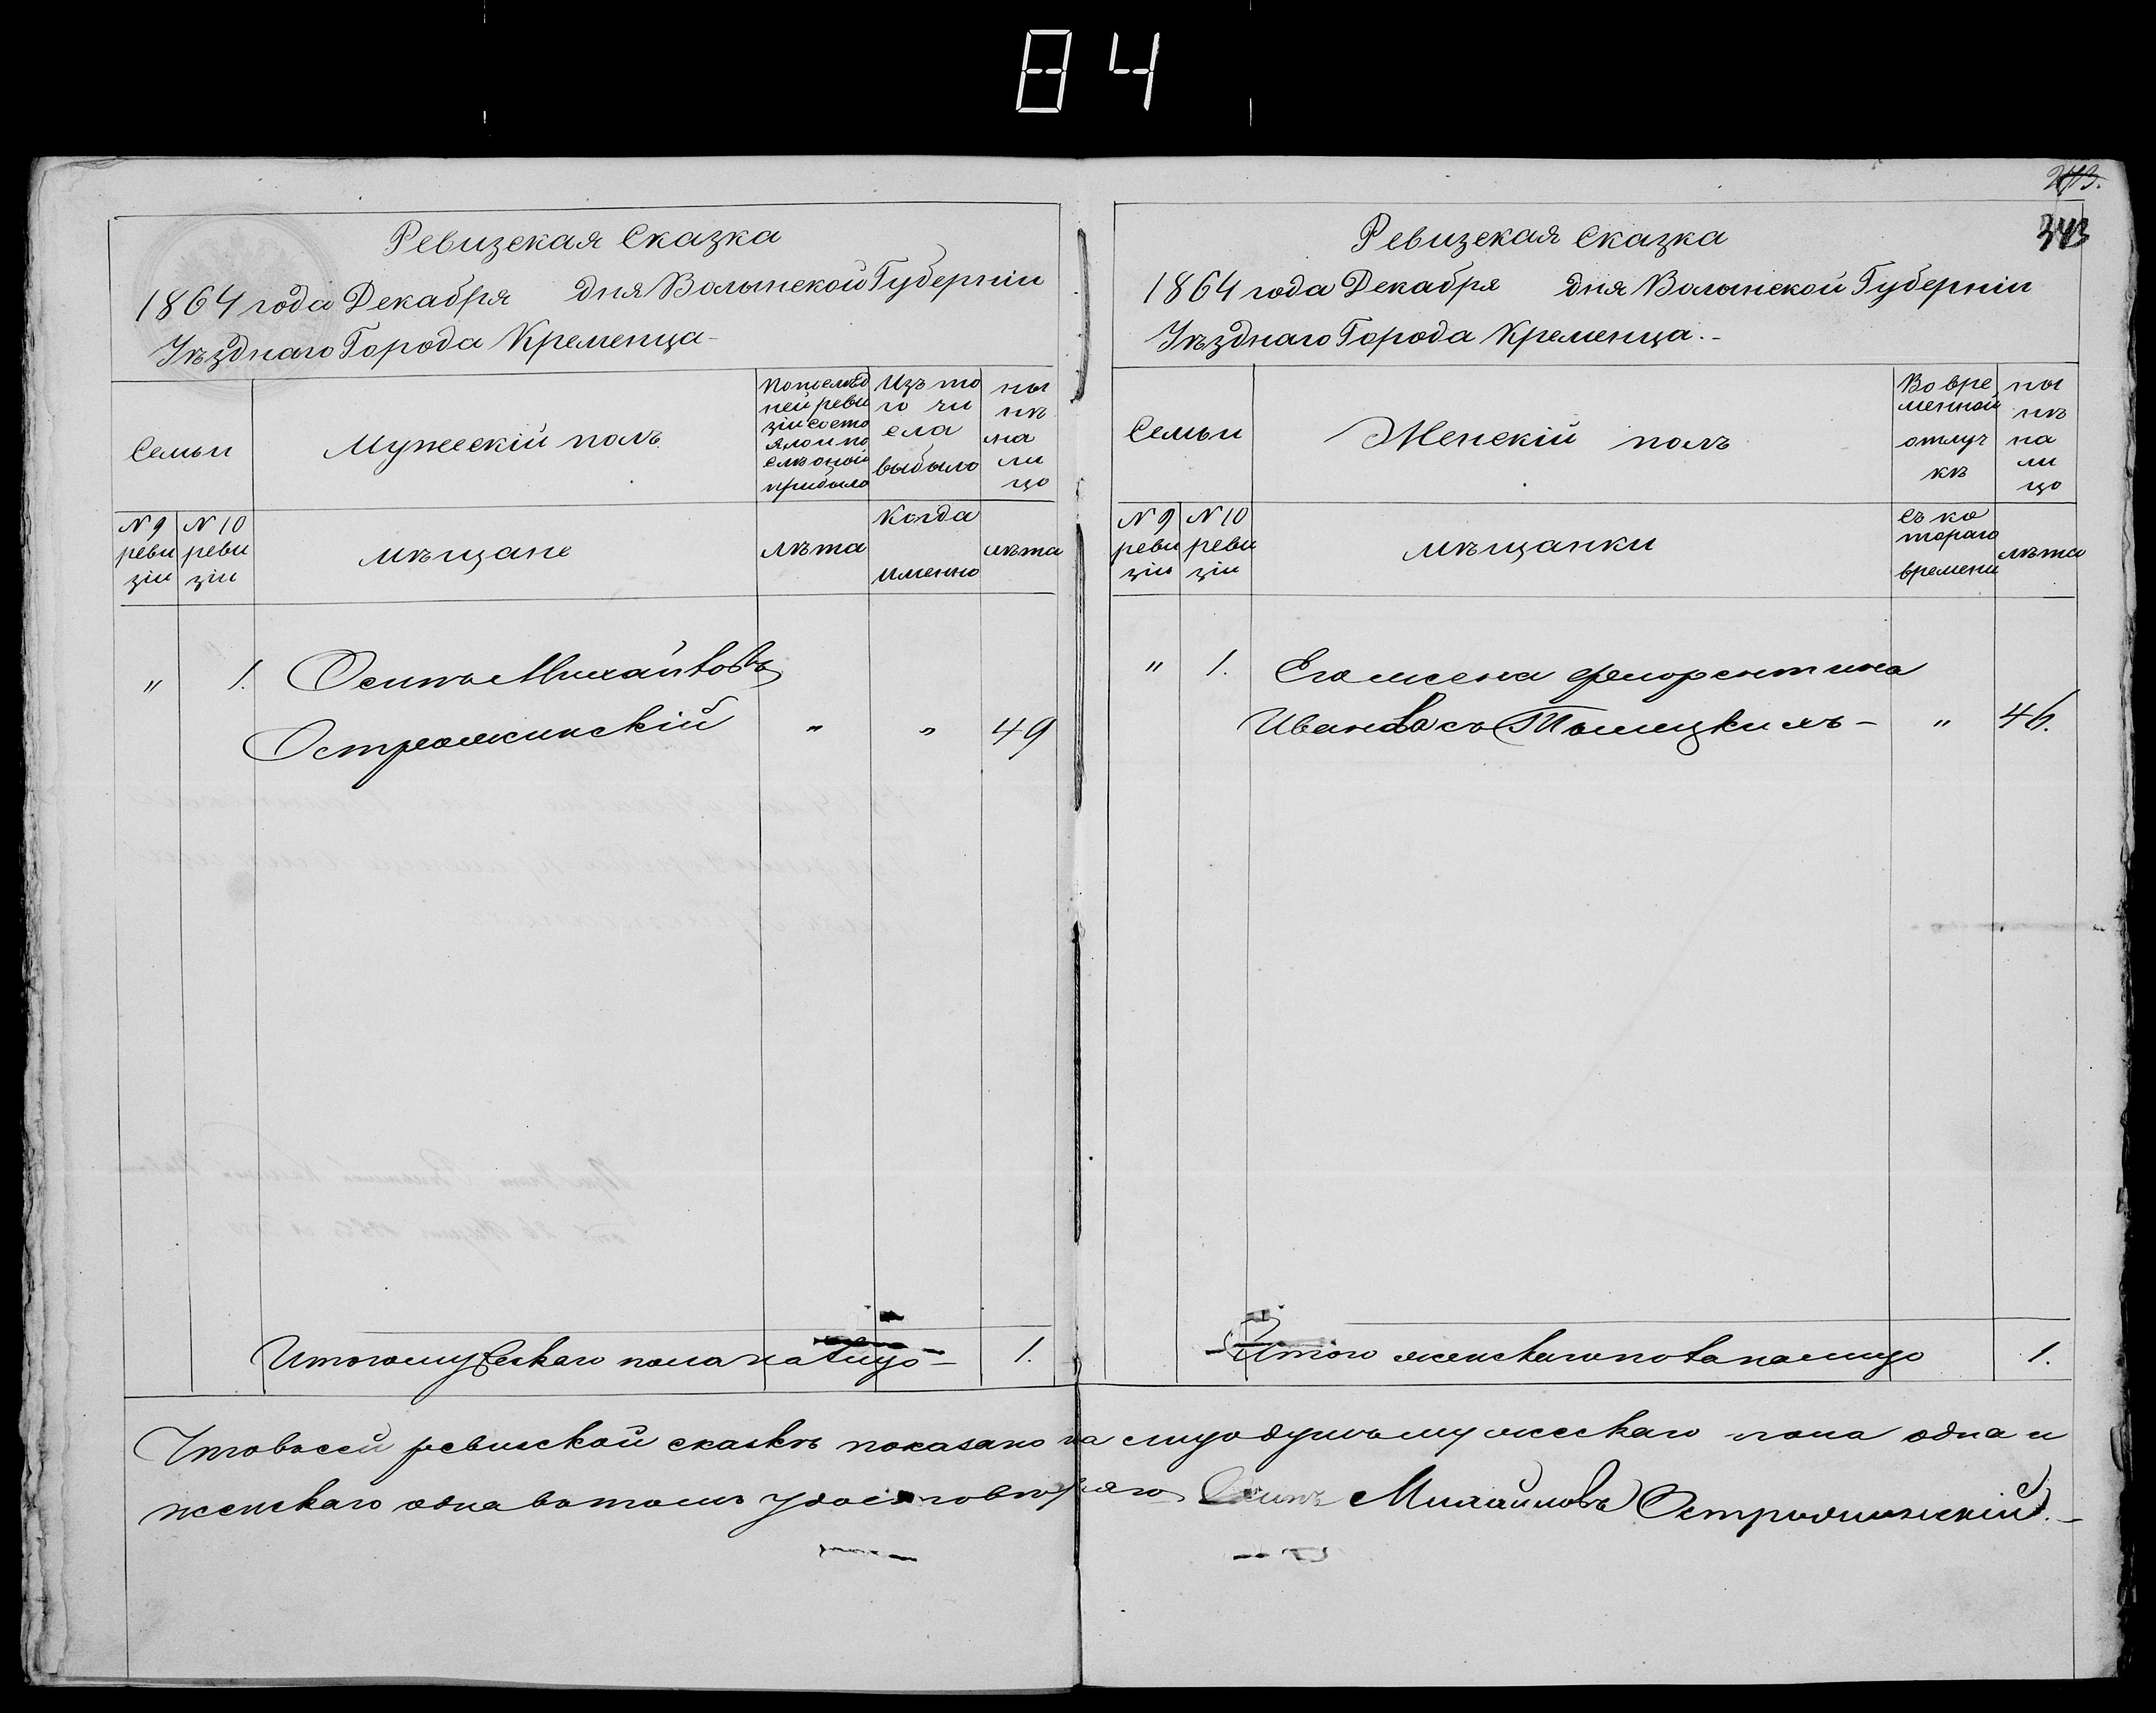 84
243.
343
Ревизская Сказка
1864 года Декабря дня Волынской Губерніи
Уѣзднаго Города Кременца
Семьи
Мужескій полъ
По послѣд
ней реви
зіи состо
яло и по
слѣ оной
прибыло
Изъ то
го чи
сла
выбыло
ны
нѣ
на
ли
цо
№ 9
реви
зіи
№ 10
реви
зіи
мѣщане
лѣта
Когда
именно
лѣта
" 1. Осипъ Михайловъ
Остромжинскій " " 49
Итого мужескаго пола на лицо – 1.
Ревизская Сказка
1864 года Декабря дня Волынской Губерніи
Уѣзднаго Города Кременца. –
Семьи
Женскій полъ
Во вре
менной
отлуч
кѣ
ны
нѣ
на
ли
цо
№ 9
реви
зіи
№ 10
реви
зіи
мѣщанки
съ ко
тораго
времени
лѣта
" 1. Его жена Флорентина
Иванова съ – " 46.
Итого женскаго пола на лицо 1.
Что в сей ревиской сказкѣ показано на лицо душъ мужескаго пола одна и
женскаго одна в томъ удостовѣряю Осипъ Михайловъ Остромжинскій. –